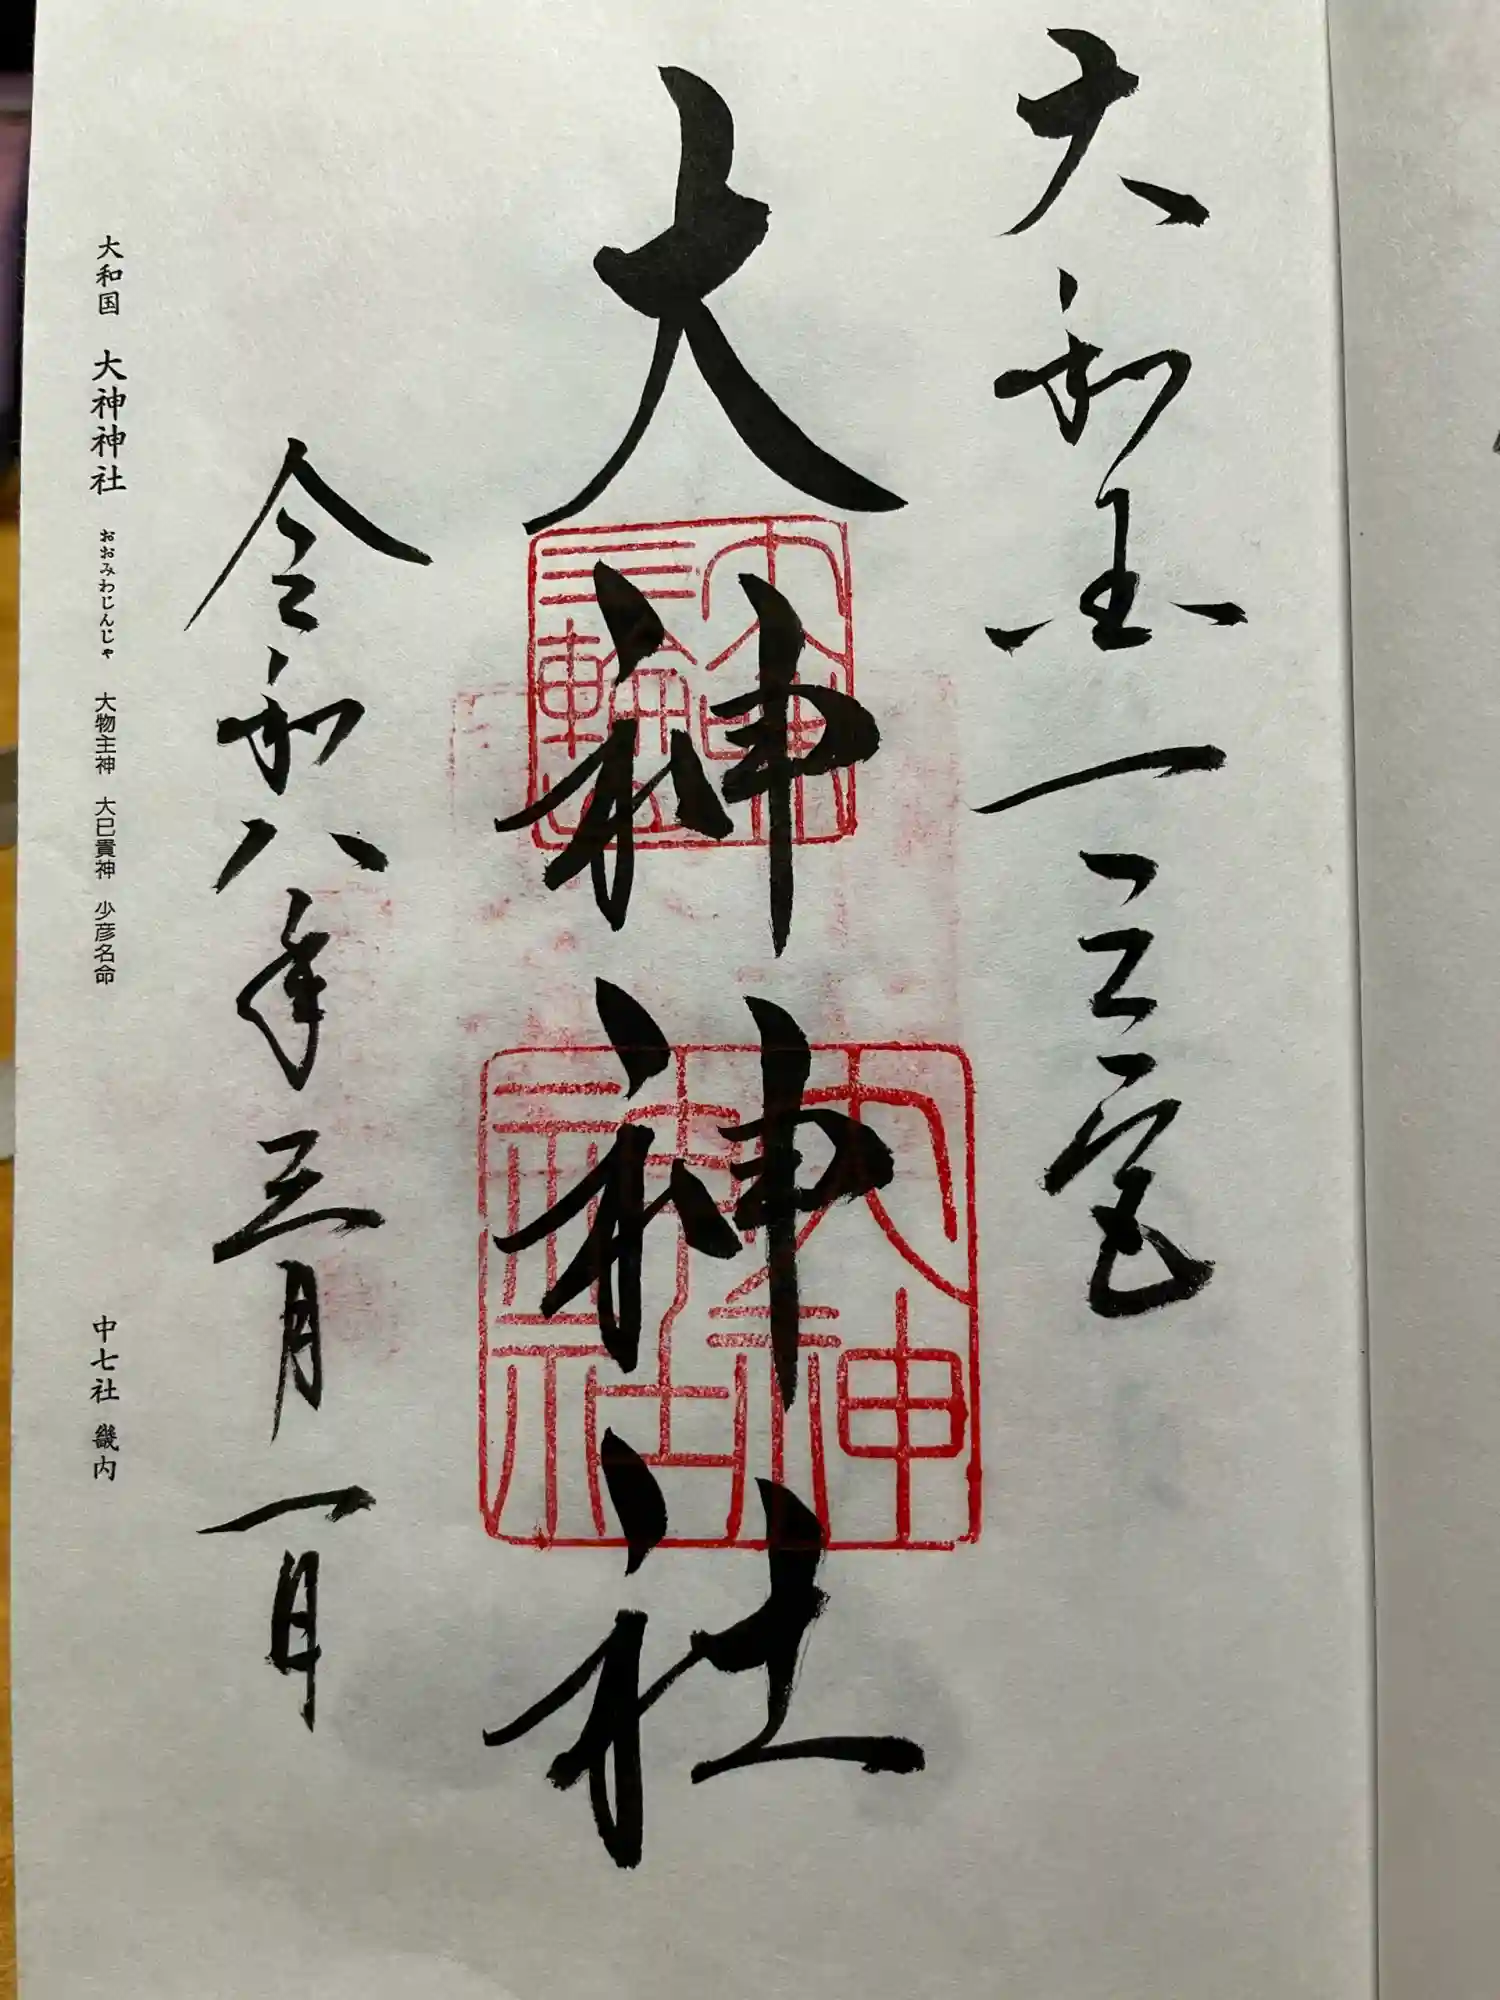 大和国一之宮
大神神社
令和八年三月一日
大和国 大神神社 おおみわじんじゃ 大物主神 大巳貴神 少彦名命 中七社 畿内
大神
三輪
大神
神社